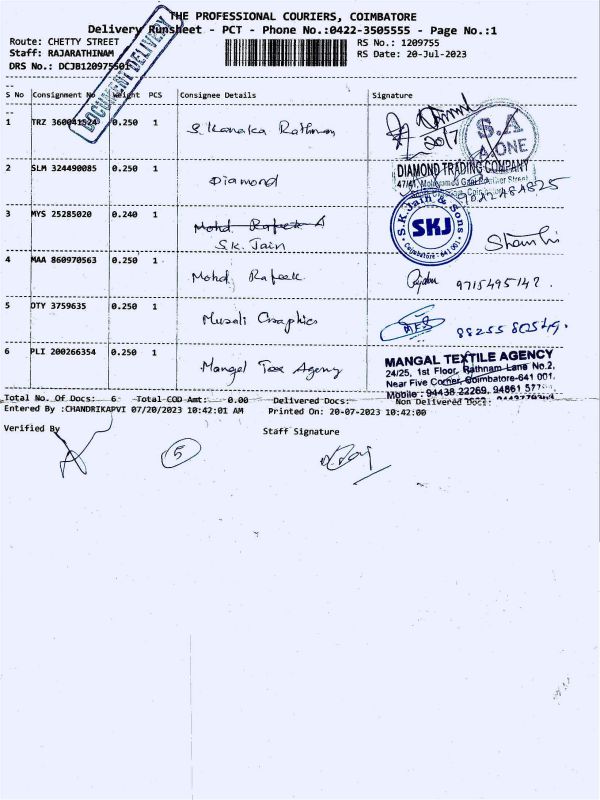 THE PROFESSIONAL COURIERS, COIMBATORE
Delivery Runsheet - PCT - Phone No.:0422-3505555 - Page No.:1
Route: CHETTY STREET RS No.: 1209755
Staff: RAJARATHINAM RS Date: 20-Jul-2023
DRS No.: DCJB120975501
DOCUMENT DELIVERY
S No Consignment No Weight PCS Consignee Details Signature
1 TRZ 360041524 0.250 1 S. Kanaka Rathnam
20/7
S.A
A ONE
2 SLM 324490085 0.250 1 Diamond
DIAMOND TRADING COMPANY
47/41,
3 MYS 25285020 0.240 1 Mohd. Rafeek A
S.K. Jain
S.K. Jain & Sons
SKJ
Coimbatore - 641 001.
4 MAA 860970563 0.250 1 Mohd. Rafeek
9715495142.
5 OTY 3759635 0.250 1 Murali Graphics
6 PLI 200266354 0.250 1 Mangal Tex Agency
MANGAL TEXTILE AGENCY
24/25, 1st Floor, Rathnam Lane No.2,
Near Five Corner, Coimbatore-641 001.
Mobile : 94438 22269, 94861
Total No. Of Docs: 6 Total COD Amt: 0.00 Delivered Docs: Non Delivered Docs:
Entered By :CHANDRIKAPVI 07/20/2023 10:42:01 AM Printed On: 20-07-2023 10:42:00
Verified By Staff Signature
5